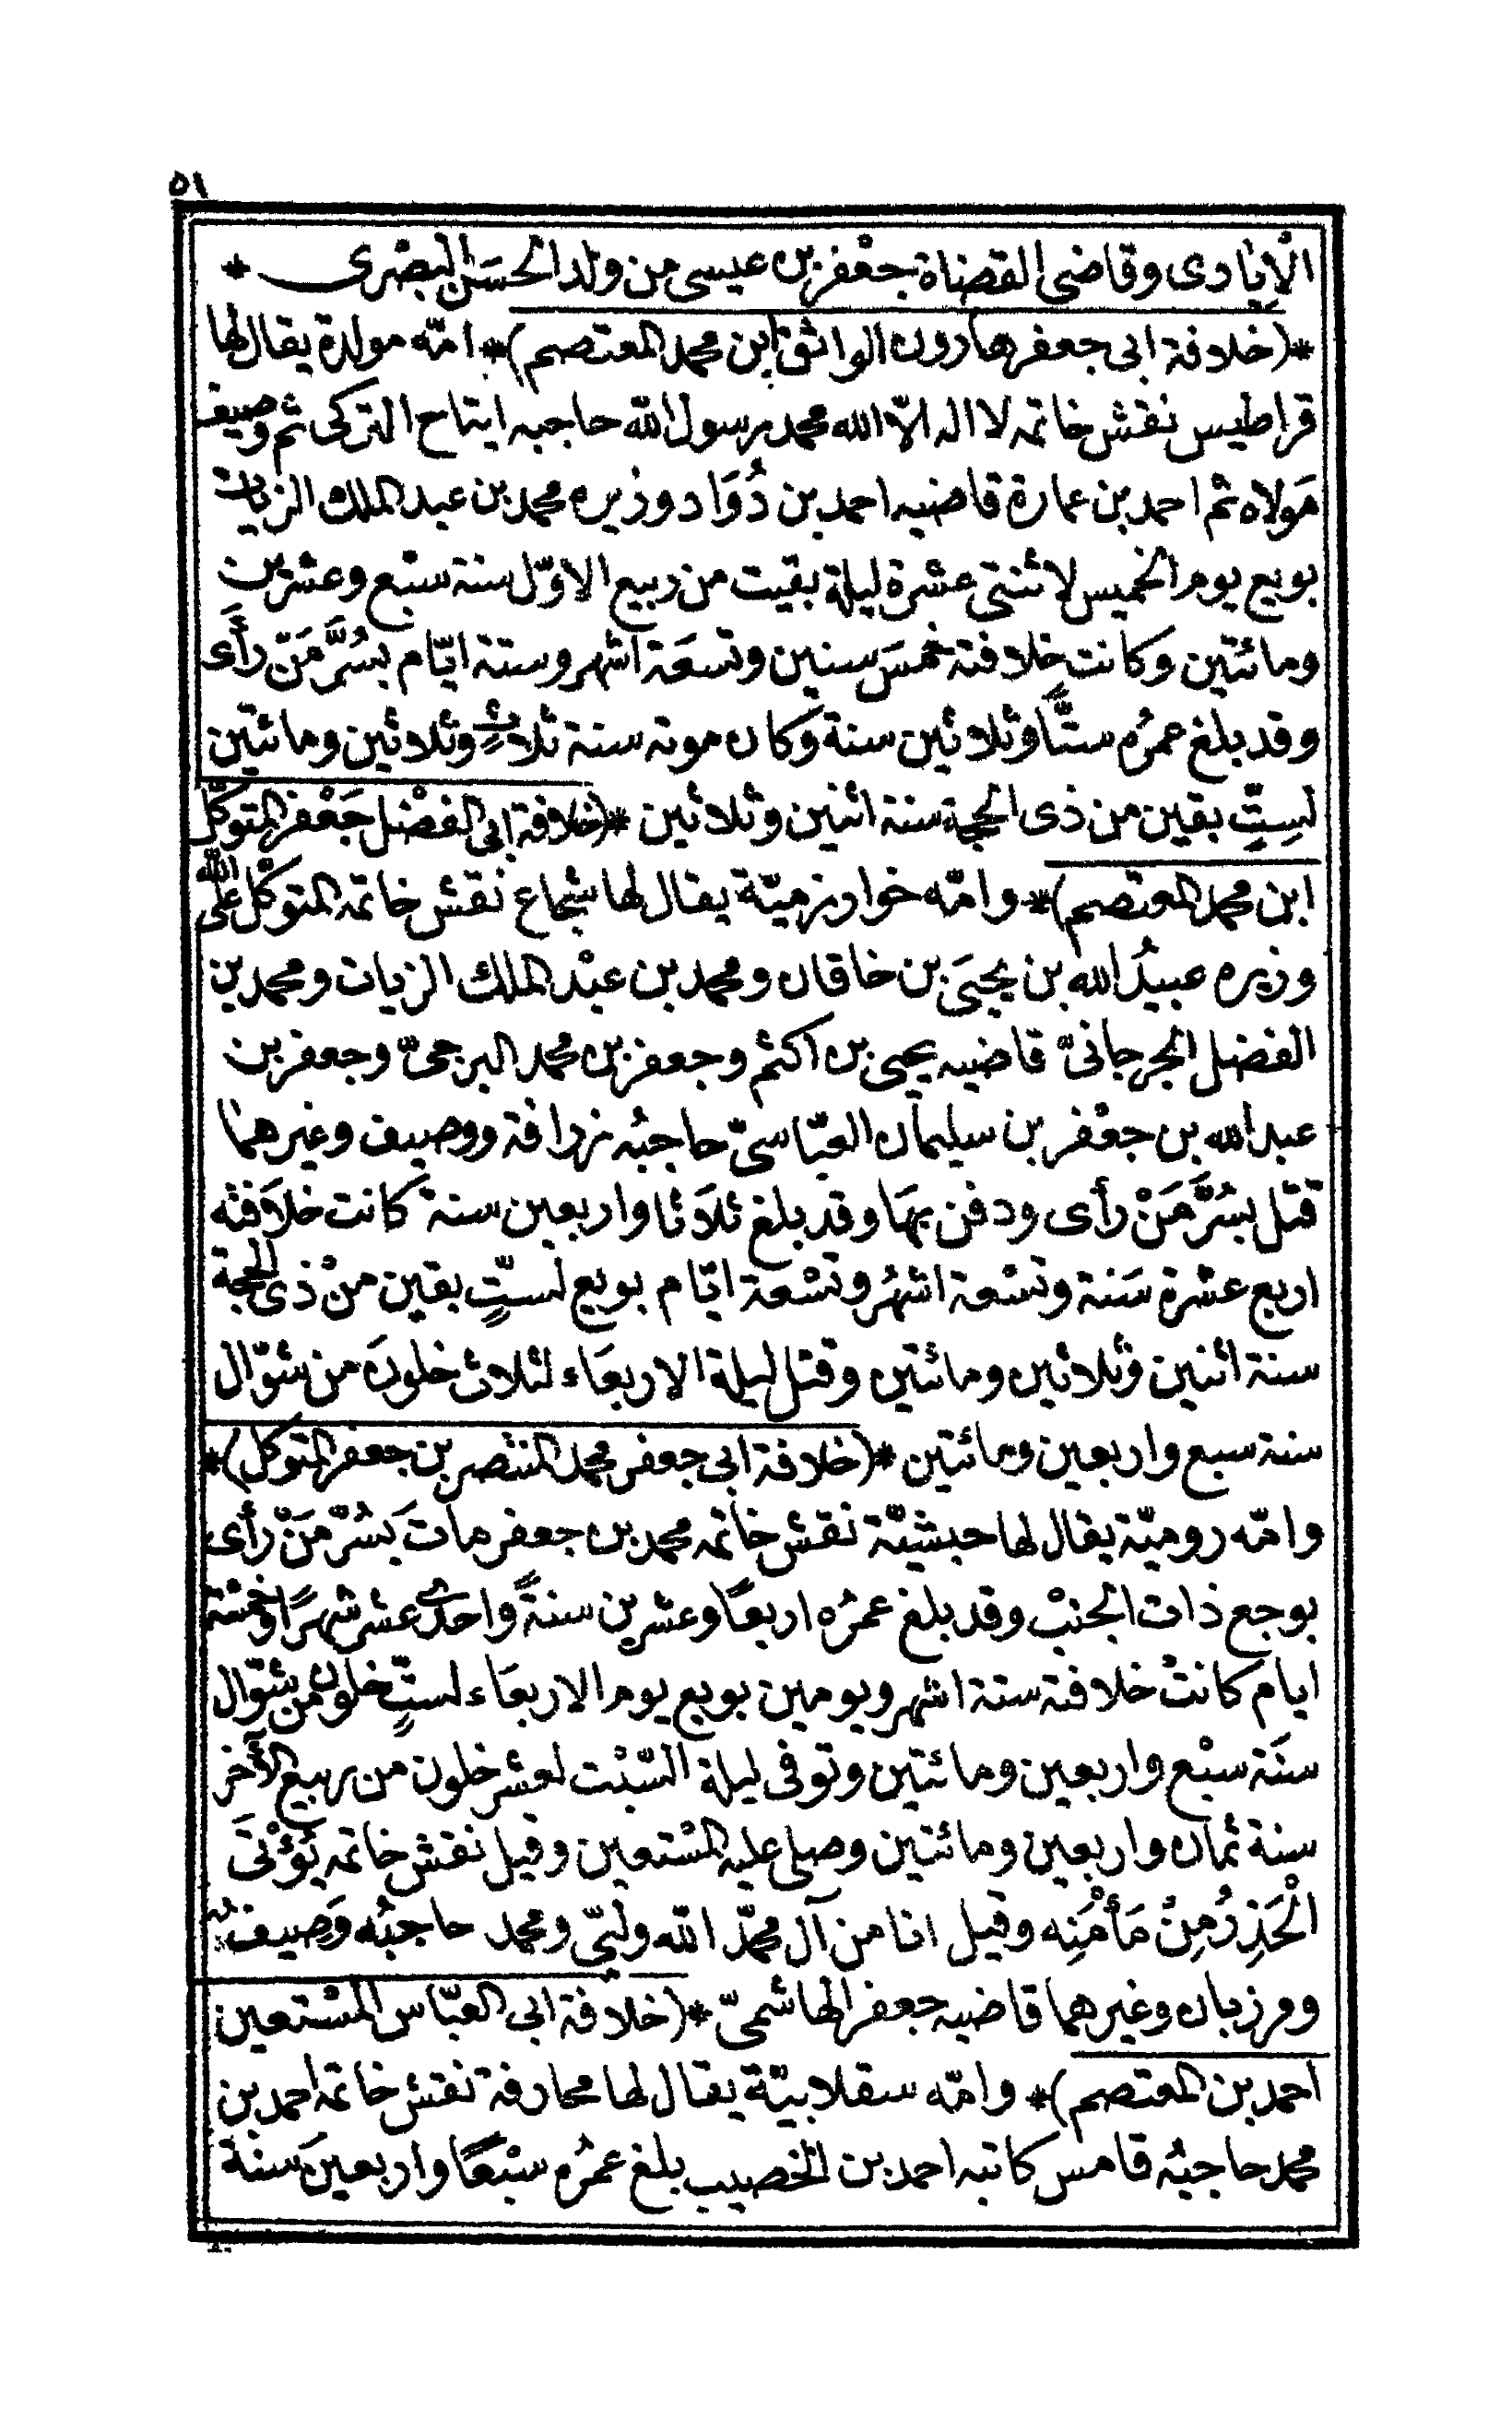 ٥١
الْاِيَادى وقاضى القضاة جعْفر بن عيسى من ولد الحسَن البصْرى *
*(خلافة ابى جعفر هارون الواثق ابن محمد المعتصم)* امّه مولدة يقال لها
قراطيس نقش خاتمه لا اله الاّ الله محمد رسول الله حاجبه ايتاح التركى ثم وصيف
مَولاه ثم احمد بن عمارة قاضيه احمد بن دُوَاد وزيره محمد بن عبد الملك الزيات
بويع يوم الخميس لاثنتى عشرة ليلة بقيت من ربيع الاوّل سنة سبْع وعشرين
ومائتين وكانت خلافته خمسَ سنين وتسعَة اشهر وستة ايّام بسُرَّ مَنْ رأَى
وقد بلغ عمرُه ستًّا وثلاثين سنة وكان موته سنة ثلاثٍ وثلاثين ومائتين
لسِتٍّ بقين من ذى الحجة سنة اثنين وثلاثين *(خلافة ابى الفضْل جَعْفر المتوكّل
ابن محمد المعتصم)* وامّه خوارزميّة يقال لها شجاع نقش خاتمه المتوكل على الله
وزيره عبيدُ الله بن يحيَى بن خاقان ومحمد بن عبْد الملك الزيات ومحمد بن
الفضل الجرجانىّ قاضيه يحيى بن اكثم وجعفر بن محمد البرجمىّ وجعفر بن
عبد الله بن جعْفر بن سليمان العبّاسىّ حاجبُه زرافة ووصيف وغيرهما
قتل بسُرَّ مَنْ رأى ودفن بهَا وقد بلغ ثلاَثا واربعين سنة كانت خلاَفته
اربع عشرة سَنة وتسْعة اشهُر وتسْعة ايّام بويع لستٍّ بقين منْ ذى الحجة
سنة اثنين وثلاثين ومائتين وقتل ليلة الاربعَاء لثلاث خلونَ من شوّال
سنة سبع واربعين ومائتين *(خلافة ابى جعفر محمد المنتصر بن جعفر المتوكل)*
وامّه روميّة يقال لها حبشيّة نقش خاتمه محمد بن جعفر ماتَ بسُرّ مَنْ رأى
بوجع ذات الجنبْ وقد بلغ عمرُه اربعًا وعشرين سنةً واحدى عشر شهرًا وخمسْة
ايام كانتْ خلافته ستة اشهر ويومين بويع يوم الاربعَاء لستٍّ خلون من شوّال
سنَة سبْع واربعين ومائتين وتوفى ليلة السّبْت لعشر خلون من ربيع الآخر
سنة ثمان واربعين ومائتين وصلى عليه المسْتعين وقيل نقش خاتمه يُؤْتَى
الْحَذِرُ مِنْ مَأمْنِه وقيل انا من آل محمّد الله وليّى ومحمد حاجبُه وَصيف
ومرزبان وغيرهما قاضيه جعفر الهاشمىّ *(خلافة ابى العبّاس المسْتعين
احمد بن المعتصم)* وامّه سقلابيّة يقال لها مخارفة نقش خاتمه احمد بن
محمد حاجبُه قامس كاتبه احمد بن الخصيب بلغ عمرُه سبْعًا واربعينَ سنة